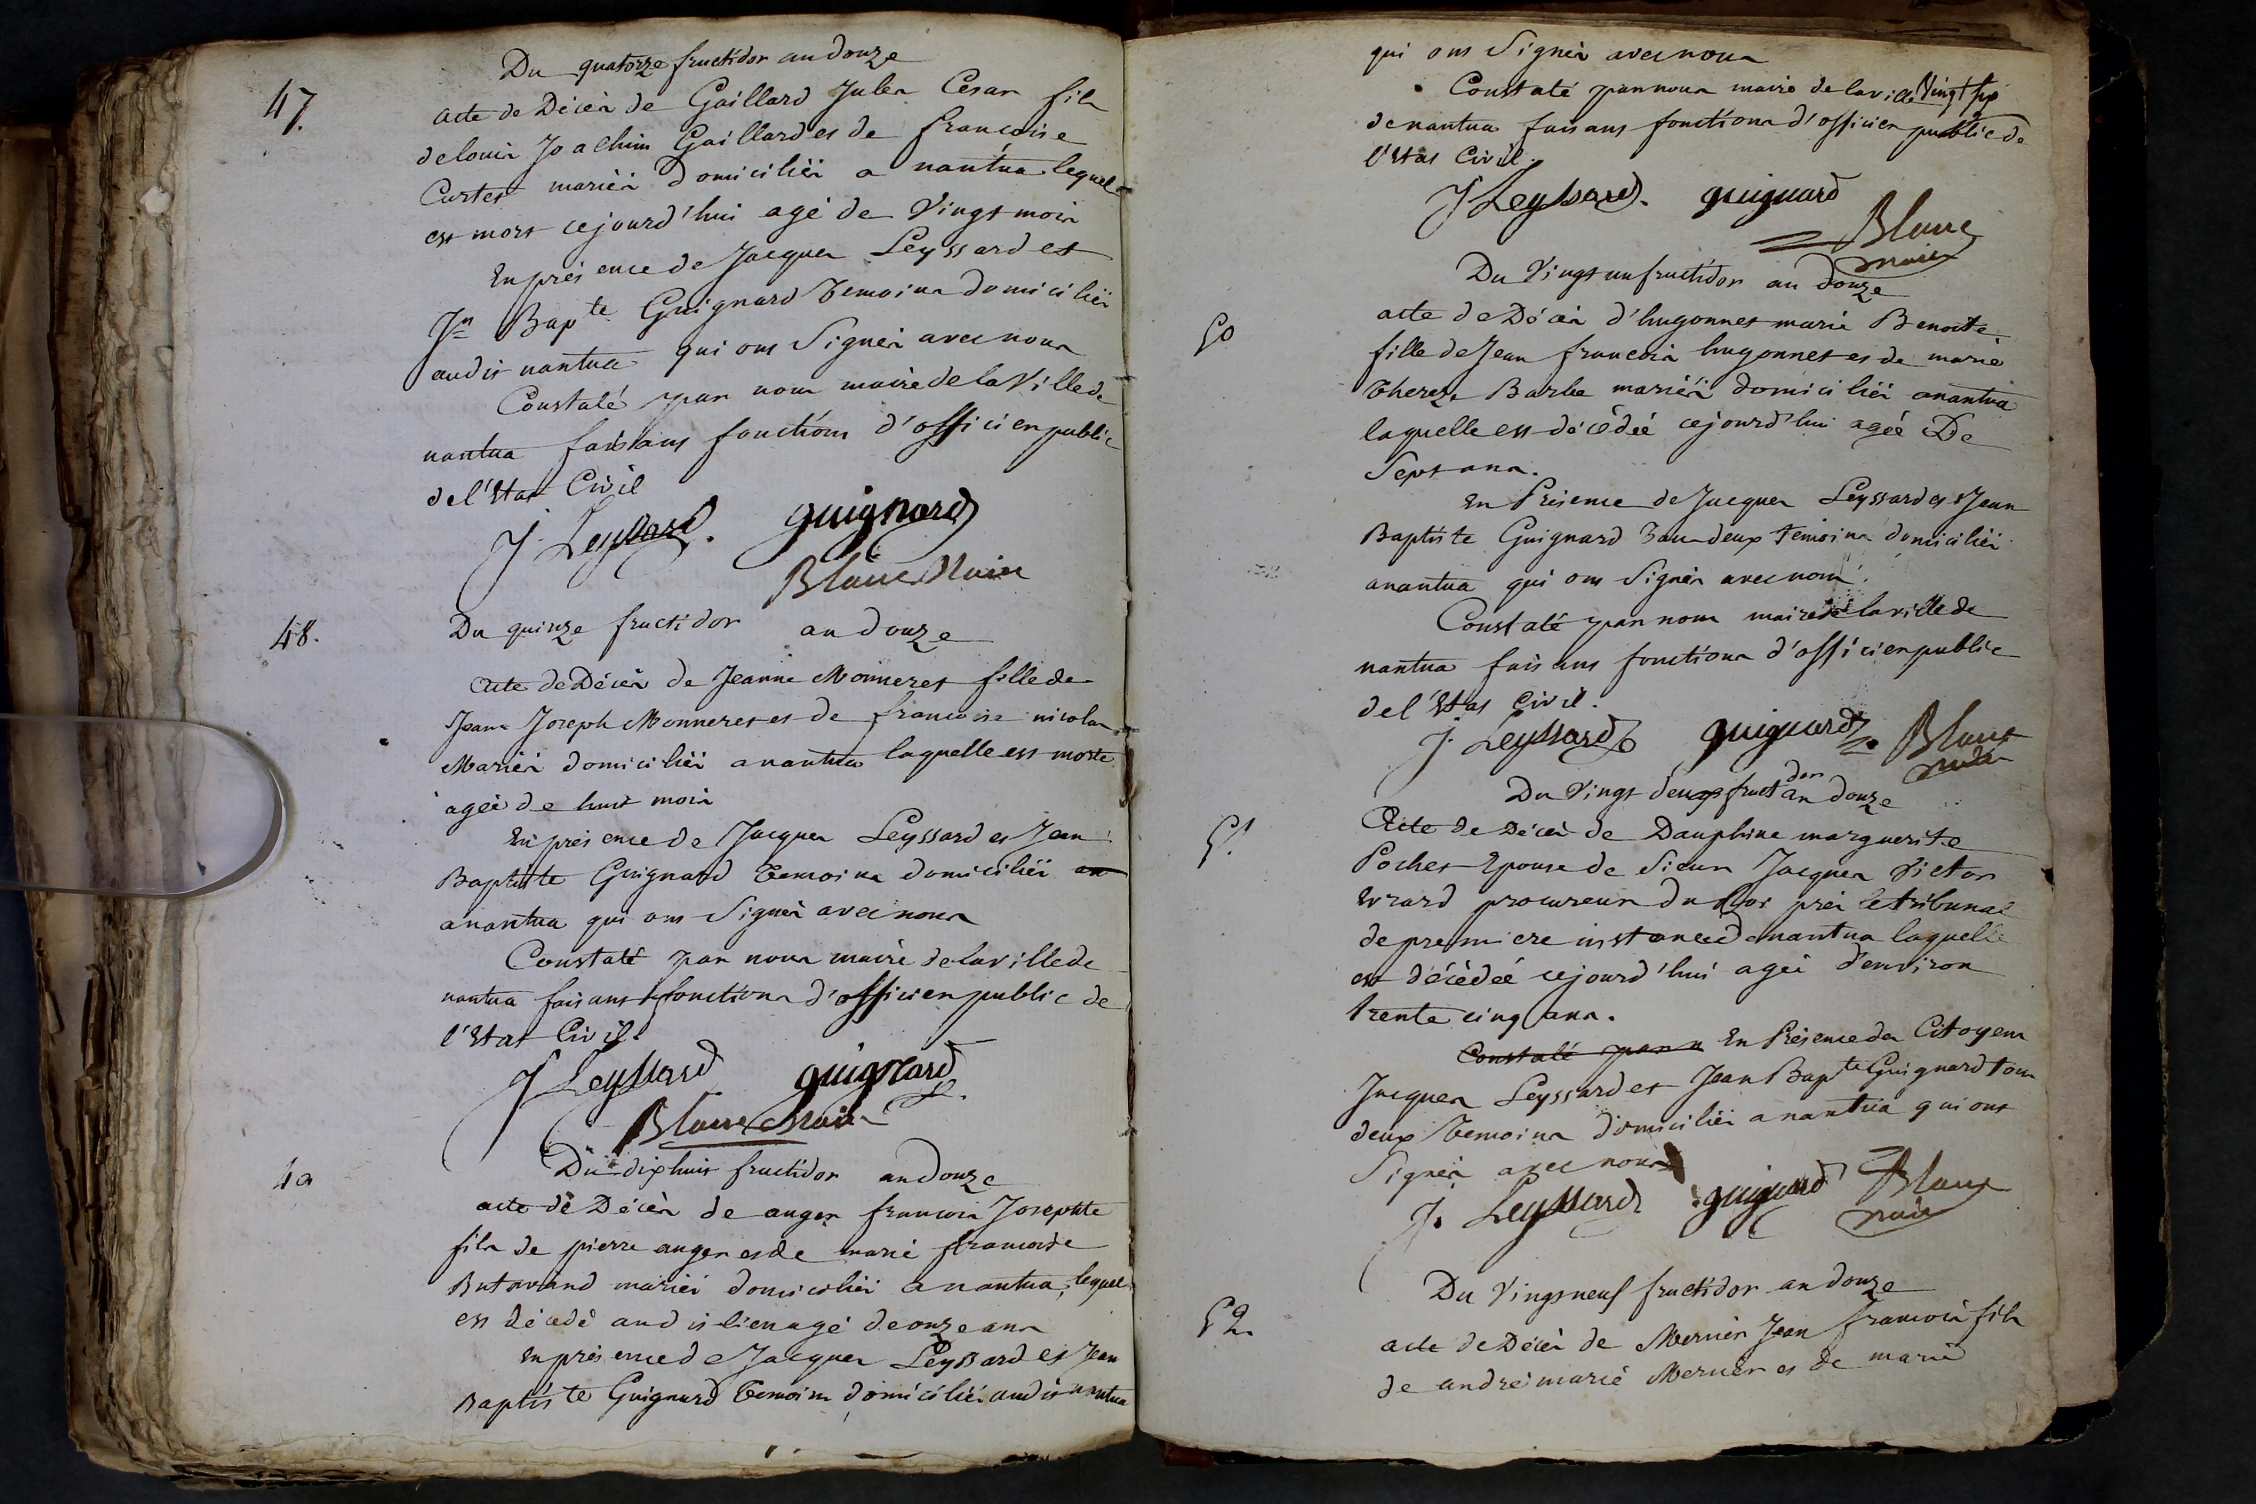 47.
Du quatorze fructidor an douze
acte de Décès de Gaillard Jules César fils
de louis Joachim Gaillard et de françoise
Curtet mariés domiciliés a nantua lequel
est mort cejourd'hui agé de Vingt mois
En présence de Jacques Leyssard et
Jn Bapte Guignard Temoins domiciliés
audit nantua qui ont Signés avec nous
Constaté par nous maire de la Ville de
nantua faisant fonctions d'officier public
de l'Etat Civil
J. Leyssard. guignard
Blanc Maire
48.
Du quinze fructidor an douze
acte de Décès de Jeanne Monneret fille de
Jean Joseph Monneret et de francoise nicolas
Mariés domiciliés a nantua laquelle est morte
agée de huit mois
En présence de Jacques Leyssard et Jean
Baptiste Guignard Temoins domiciliés an
a nantua qui ont Signés avec nous
Constaté par nous maire de la ville de
nantua faisant fonctions d'officier public de
l'Etat Civil.
J Leyssard guignard
Blanc Maire
49
Du dixhuit fructidor an douze
acte de Décès de auger francois Josephte
fils de pierre auger et de marie francoise
Butavand mariés domiciliés a nantua, lequel
est décédé audit lieu agé de onze ans
En présence de Jacques Leyssard et Jean
Baptiste Guignard Temoins domiciliés audit nantua
qui ont Signés avec nous
Constaté par nous maire de la ville Vingt six
de nantua faisant fonctions d'officier public de
l'Etat Civil.
J Leyssard. guignard
Blanc
maire
Du Vingt un fructidor an douze
50
acte de Décès d'hugonnet marie Benoite
fille de Jean francois hugonnet et de marie
Therese Barbe mariés domiciliés a nantua
laquelle est décédée cejourd'hui agée De
Sept ans.
En Présence de Jacques Leyssard et Jean
Baptiste Guignard Tous deux témoins domiciliés
a nantua qui ont Signés avec nous.
Constaté par nous maire de la ville de
nantua faisant fonctions d'officier public
de l'Etat Civil.
J. Leyssard guignard Blanc
maire
Du Vingt deux fructdor an douze
51
Acte de Décès de Dauphine marguerite
Pochet Epouse de Sieur Jacques Victor
Evrard procureur du Roi près le tribunal
de premiere instance de nantua laquelle
est décédée cejourd'hui agée d'environ
trente cinq ans.
Constaté par n En Présence des Citoyens
Jacques Leyssard et Jean Bapte Guignard tous
deux Temoins domiciliés a nantua qui ont
Signés avec nous
J. Leyssard guignard Blanc
maire
Du Vingt neuf fructidor an douze
52
acte de Décès de Mernier Jean francois fils
de andré marie Mernier et de marie